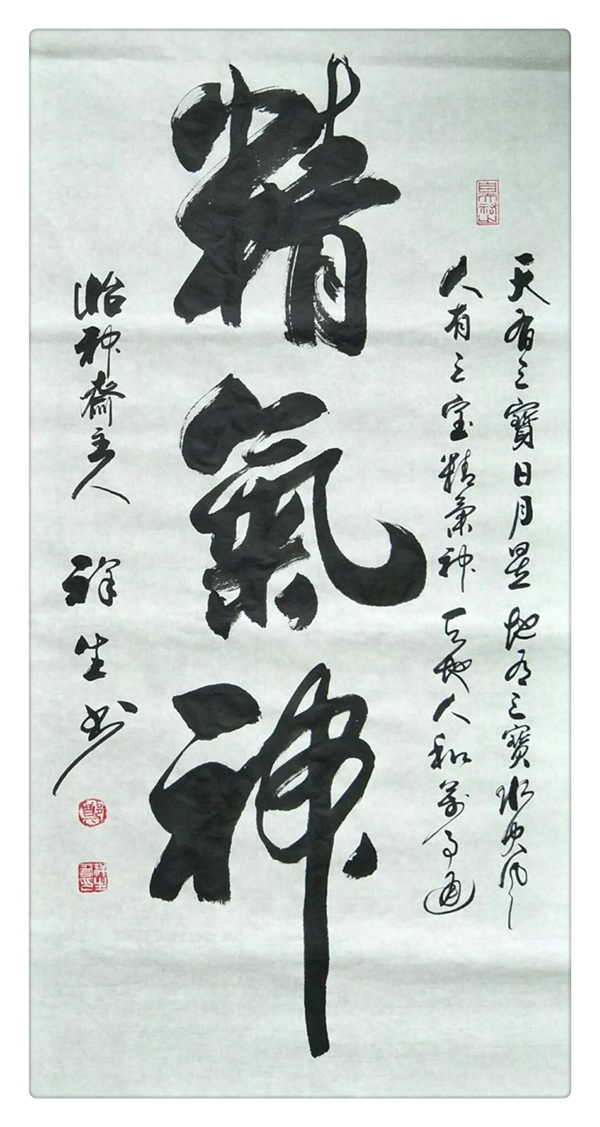 天有三寶日月星地有三寶水火风
人有三宝精氣神天地人和萬事通
精氣神
怡神齋主人
祥生书